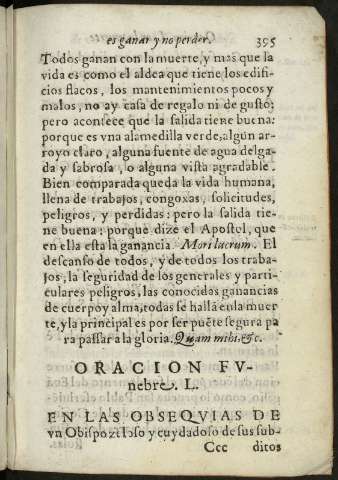 es ganar y no perder. 395
Todos ganan con la muerte, y mas que la
vida es como el aldea que tiene los edifi-
cios flacos, los mantenimientos pocos y
malos, no ay casa de regalo ni de gusto;
pero acontece que la salida tiene buena:
porque es vna alamedilla verde, algun ar-
royo claro, alguna fuente de agua delga-
da y sabrosa, o alguna vista agradable.
Bien comparada queda la vida humana,
llena de trabajos, congoxas, solicitudes,
peligros, y perdidas: pero la salida tie-
ne buena: porque dize el Apostol, que
en ella esta la ganancia. Mori lucrum. El
descanso de todos, y de todos los traba-
jos, la seguridad de los generales y parti-
culares peligros, las conocidas ganancias
de cuerpo y alma, todas se hallā en la muer
te, y la principal es por ser puēte segura pa
ra passar a la gloria. Quam mihi, &c.
ORACION FV-
nebre. L.
EN LAS OBSEQVIAS DE
vn Obispo zeloso y cuydadoso de sus sub-
Ccc ditos